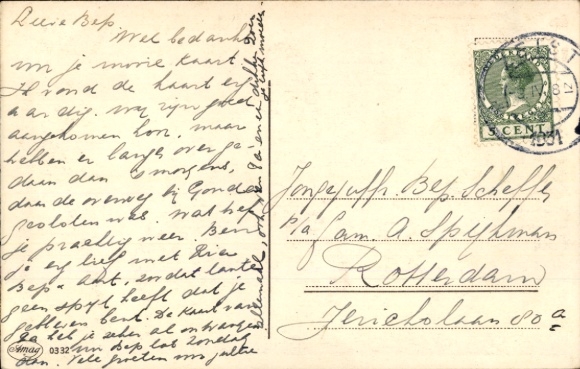 Lieve Bep
Wel bedankt
v. je mooie kaart.
Ik vond de kaart erg
aardig. Wij zijn goed
aangekomen hoor, maar
hebben er langer over ge-
daan dan 's morgens,
daar de overweg bij Gouda
gesloten was. Wat heb
je prachtig weer. Ben
je erg lief met
Bep" dat tante
geen spijt heeft dat je
gebleven bent. De kaart van
Pa heb je zeker al ontvangen
Bep tot Zondag
dan. Vele groeten
allemaal, ook van Pa en een dikke zoen
Amag 0332
ZEIST
1931
5 CENT
Jongejuffr. Bep. Scheffer
p/a Fam. A. Spijkman
Rotterdam
Jericholaan 80a